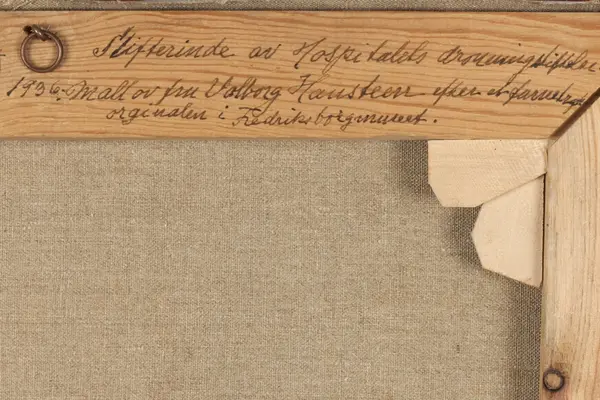 Stifterinde av Hospitalets dronningstiftelse
1936. Malt av fru Valborg Hansteen efter et
orginalen i Fredriksborgmuseet.